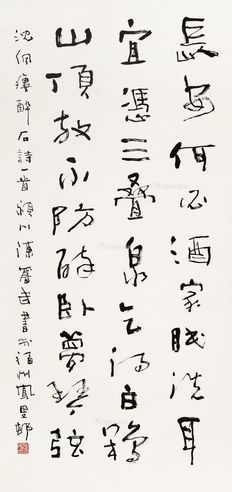 長安何必酒家眠洗耳
宜憑三疊泉乞得白鶴
山頂放不防醉卧夢琴弦
沈佩醉石詩一首潁川陳奮武書於福州鳳里邨